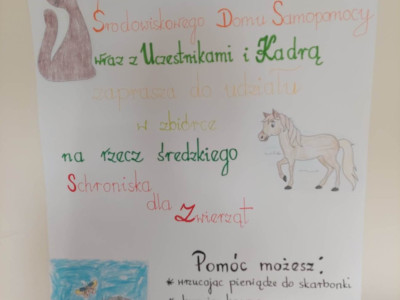 Środowiskowego Domu Samopomocy
wraz z Uczestnikami i Kadrą
zaprasza do udziału
w zbiórce
na rzecz średzkiego
Schroniska
dla Zwierząt
Pomóc możesz:
* wrzucając pieniądze do skarbonki